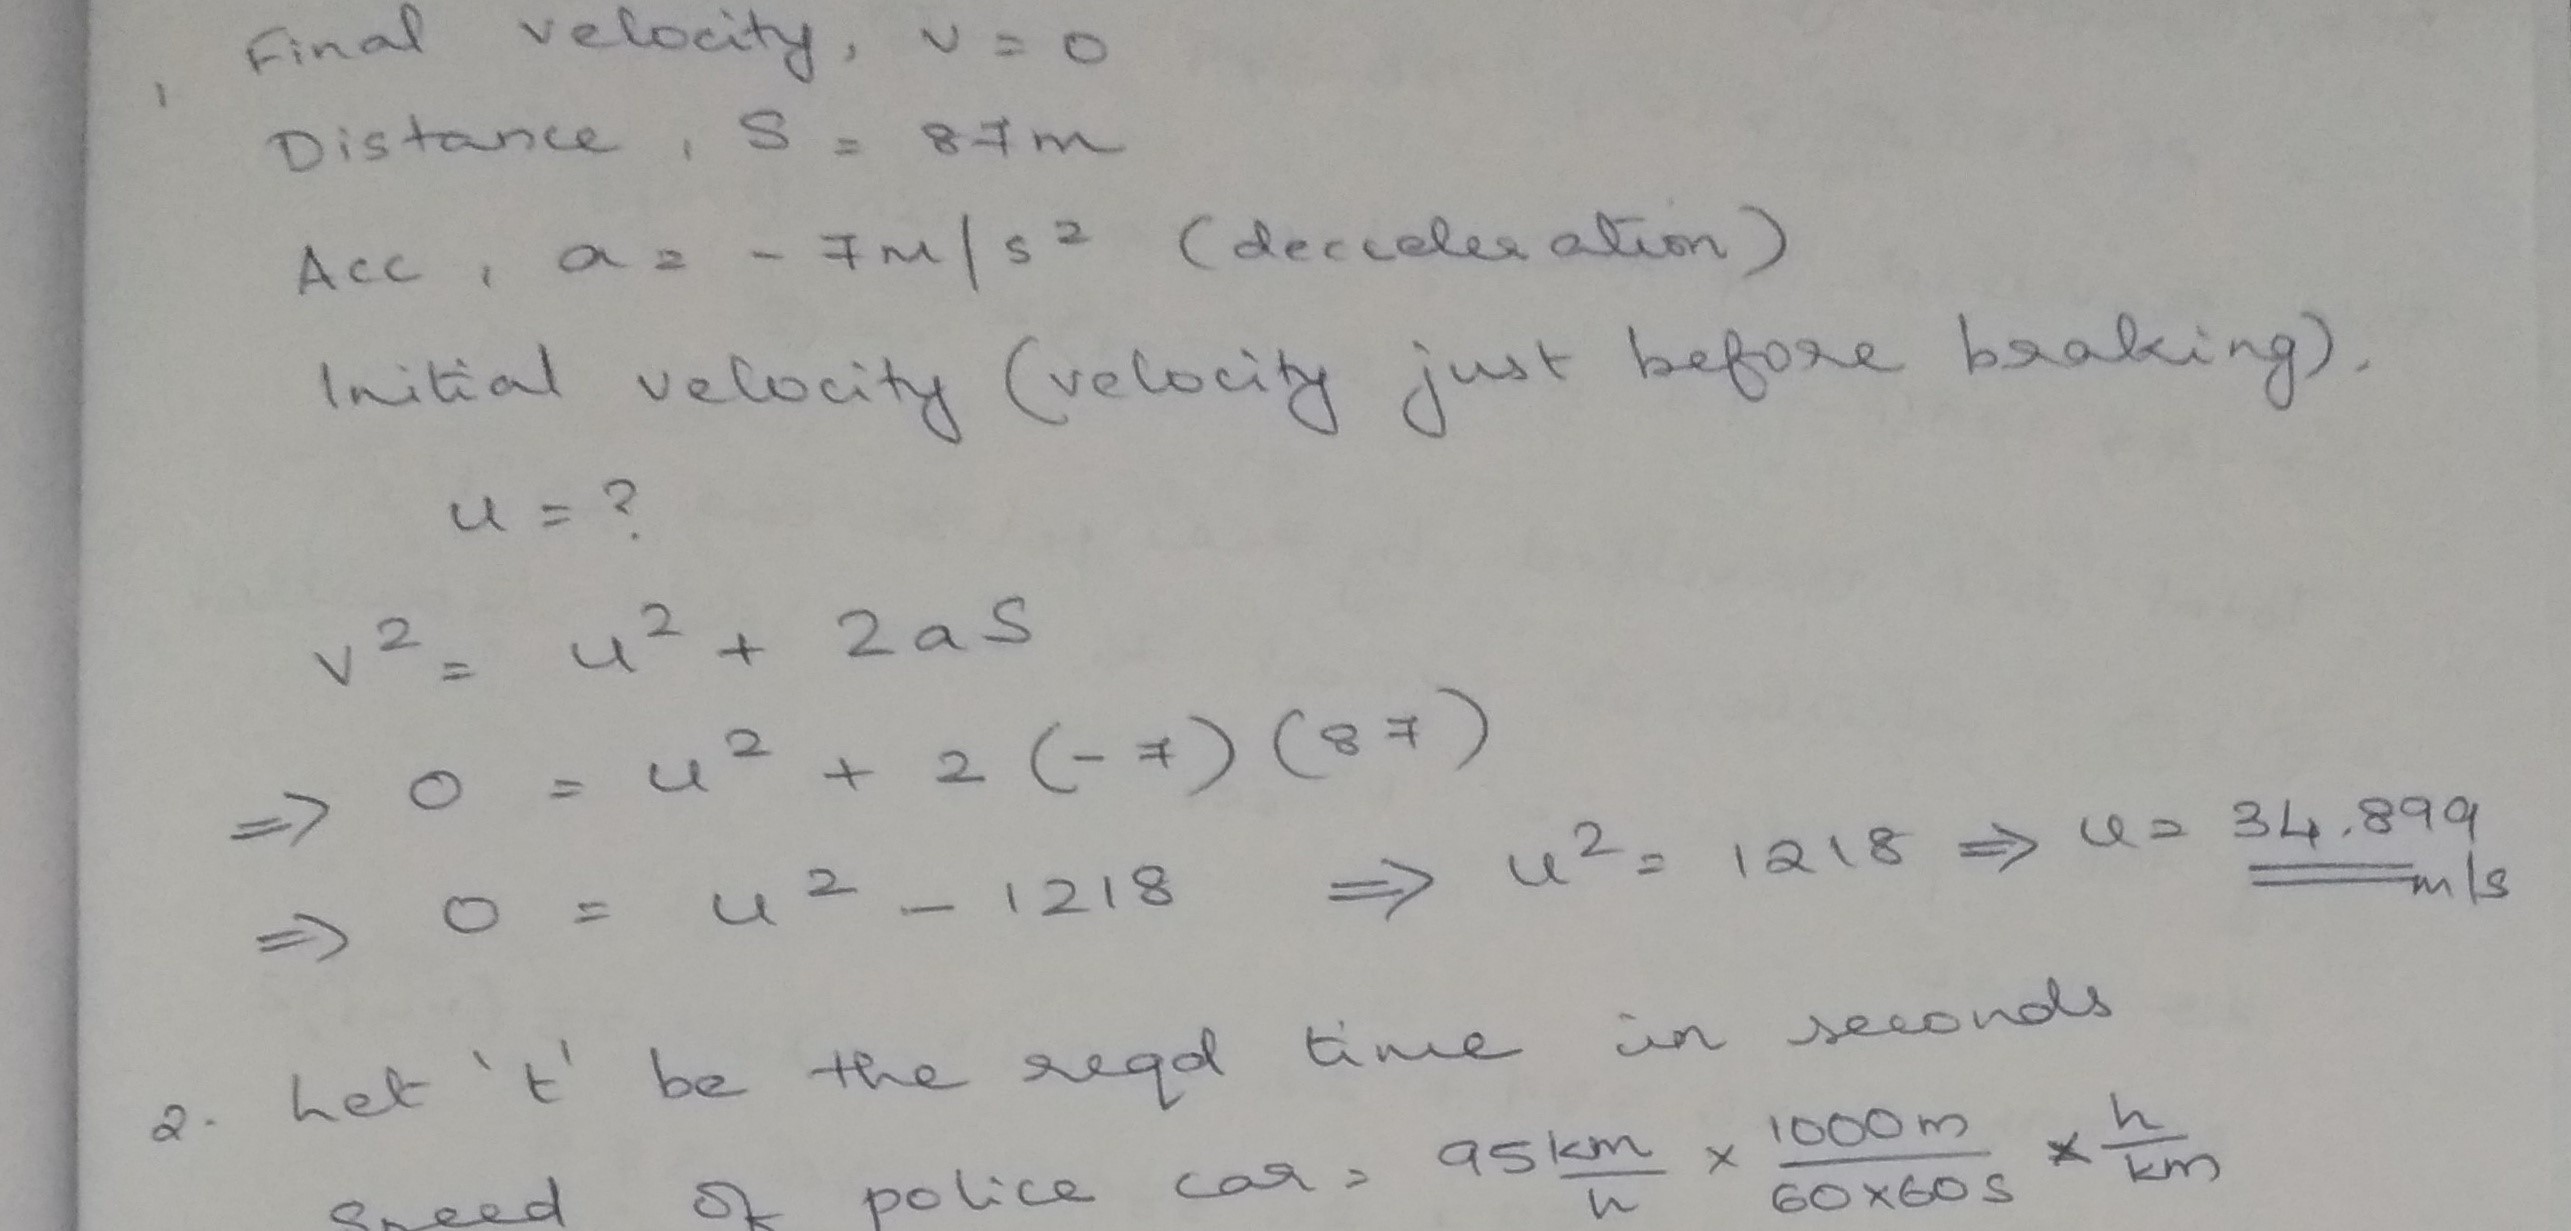 1, Final velocity, v = 0
Distance, S = 87m
Acc, a = - 7m/s² (decceleration)
Initial velocity (velocity just before braking).
u = ?
v² = u² + 2aS
⇒ 0 = u² + 2 (-7) (87)
⇒ 0 = u² - 1218 ⇒ u² = 1218 ⇒ u = 34.899 m/s
2. Let 't' be the reqd time in seconds
Speed of police car = 95 km/h × 1000m/60×60s × h/km